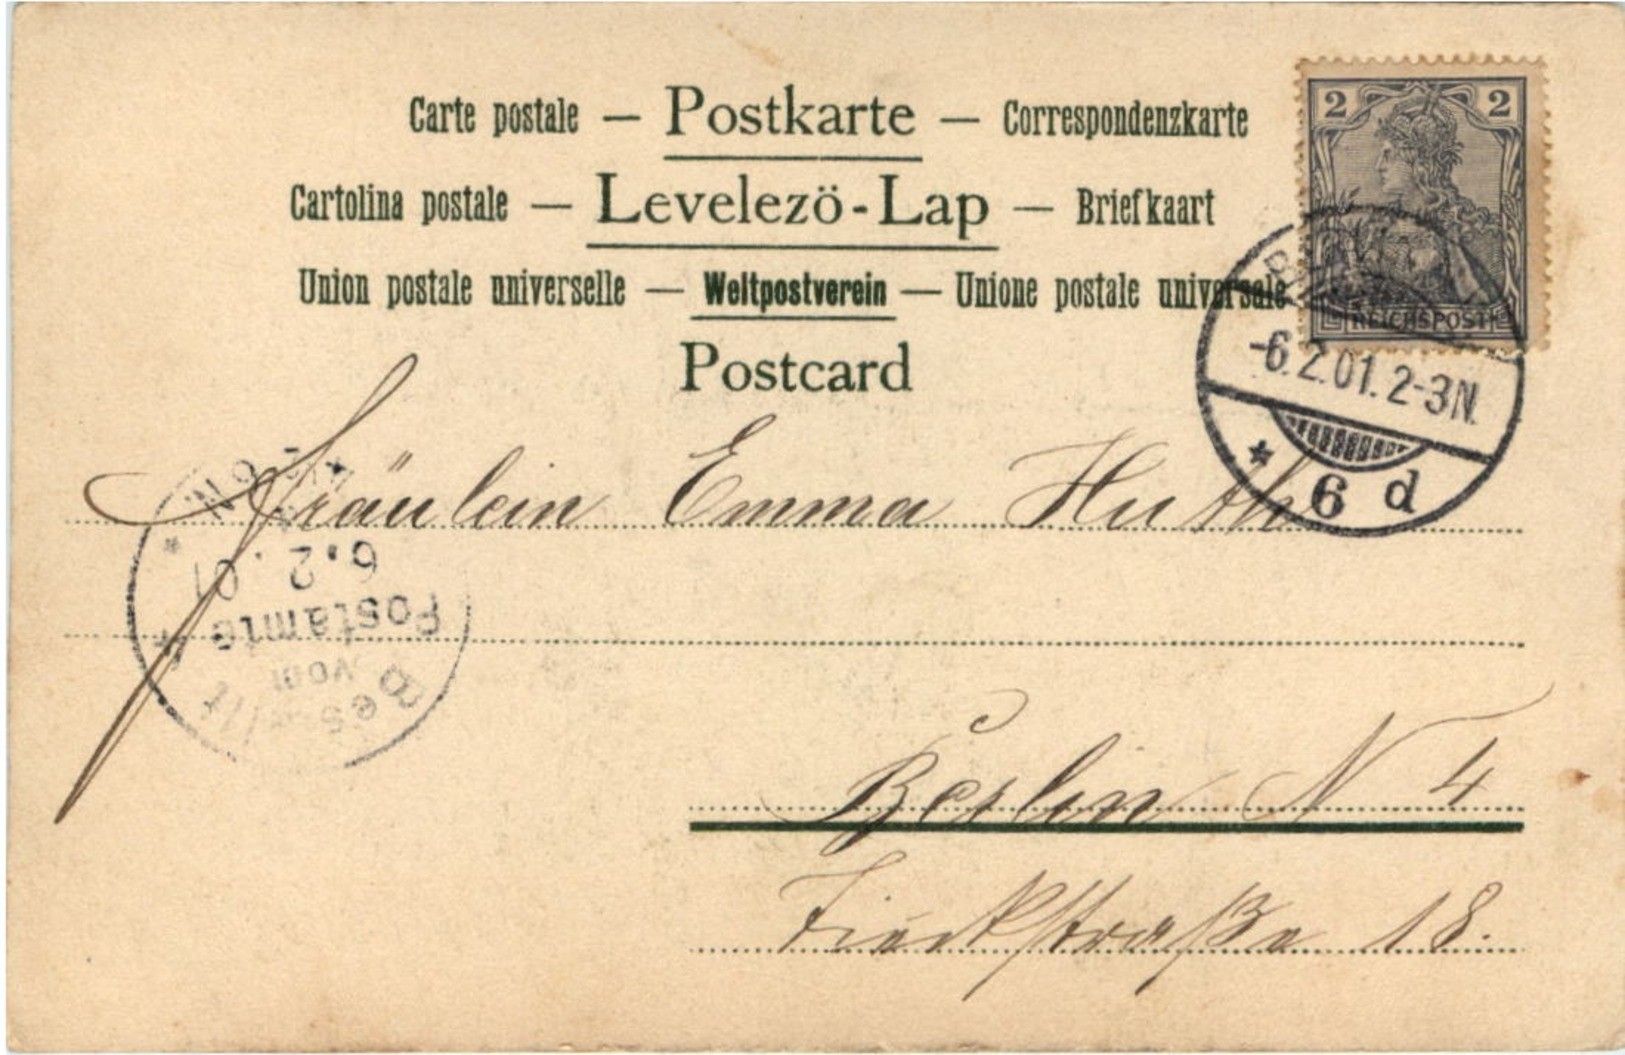 Carte postale — Postkarte — Correspondenzkarte
Cartolina postale — Levelezö-Lap — Briefkaart
Union postale universelle — Weltpostverein — Unione postale universale
Postcard
2 2
REICHSPOST
-6.2.01. 2-3N.
* 6 d
Fräulein Emma Huth
6.2.01
Bestellt
vom
Postamte
Berlin N 4
Tieckstraße 18.